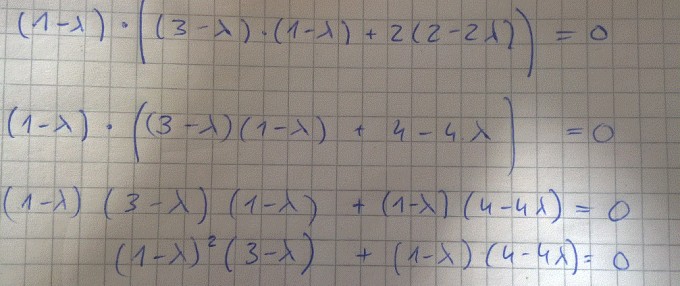 (1-λ)·((3-λ)·(1-λ)+2(2-2λ))=0
(1-λ)·((3-λ)(1-λ) + 4-4λ) =0
(1-λ)(3-λ)(1-λ) +(1-λ)(4-4λ)=0
(1-λ)²(3-λ) +(1-λ)(4-4λ)=0